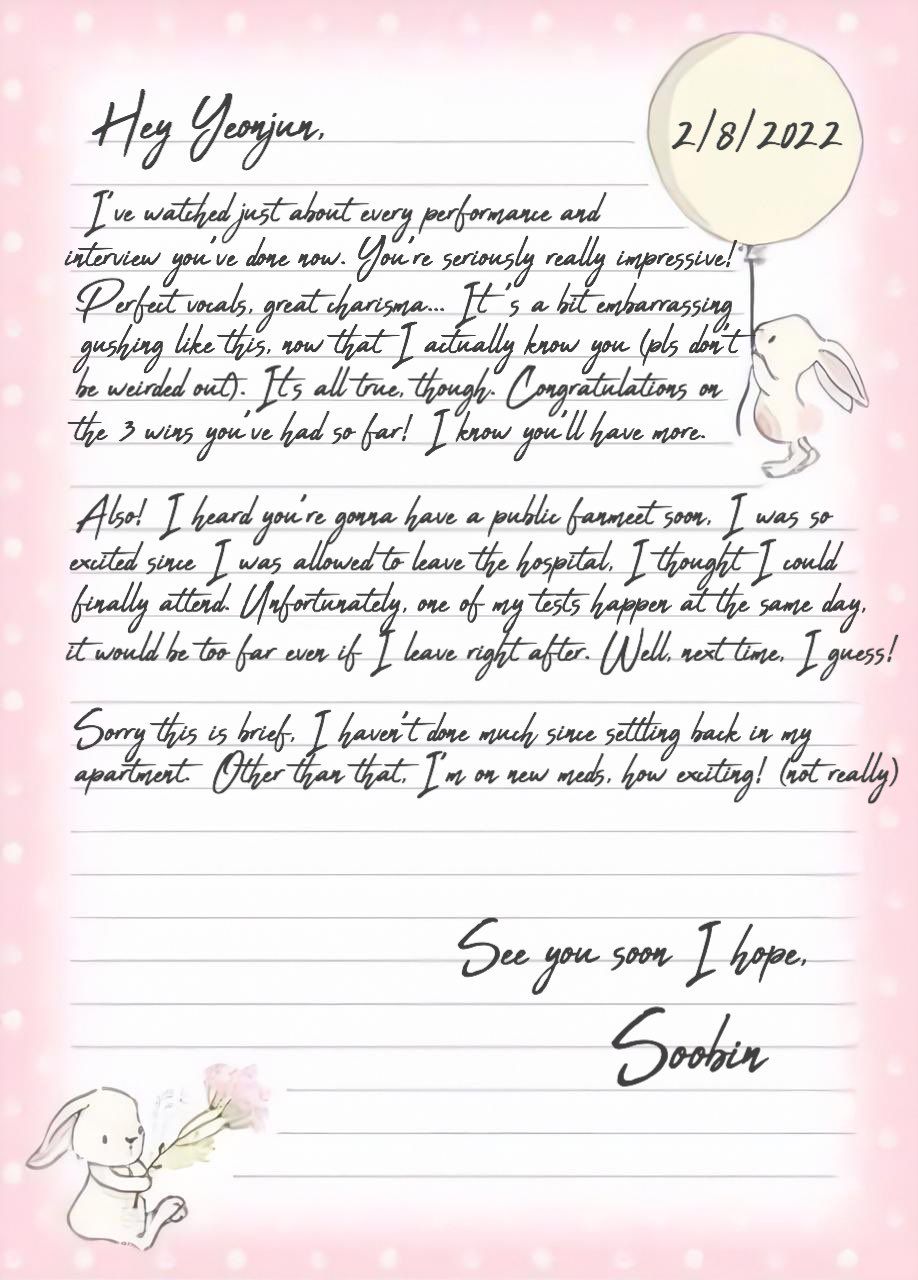 Hey Yeonjun,
2/8/2022
I've watched just about every performance and
interview you've done now. You're seriously really impressive!
Perfect vocals, great charisma... It's a bit embarrassing
gushing like this, now that I actually know you (pls don't
be weirded out). It's all true, though. Congratulations on
the 3 wins you've had so far! I know you'll have more.
Also! I heard you're gonna have a public fanmeet soon, I was so
excited since I was allowed to leave the hospital, I thought I could
finally attend. Unfortunately, one of my tests happen at the same day,
it would be too far even if I leave right after. Well, next time, I guess!
Sorry this is brief, I haven't done much since settling back in my
apartment. Other than that, I'm on new meds, how exciting! (not really)
See you soon I hope,
Soobin